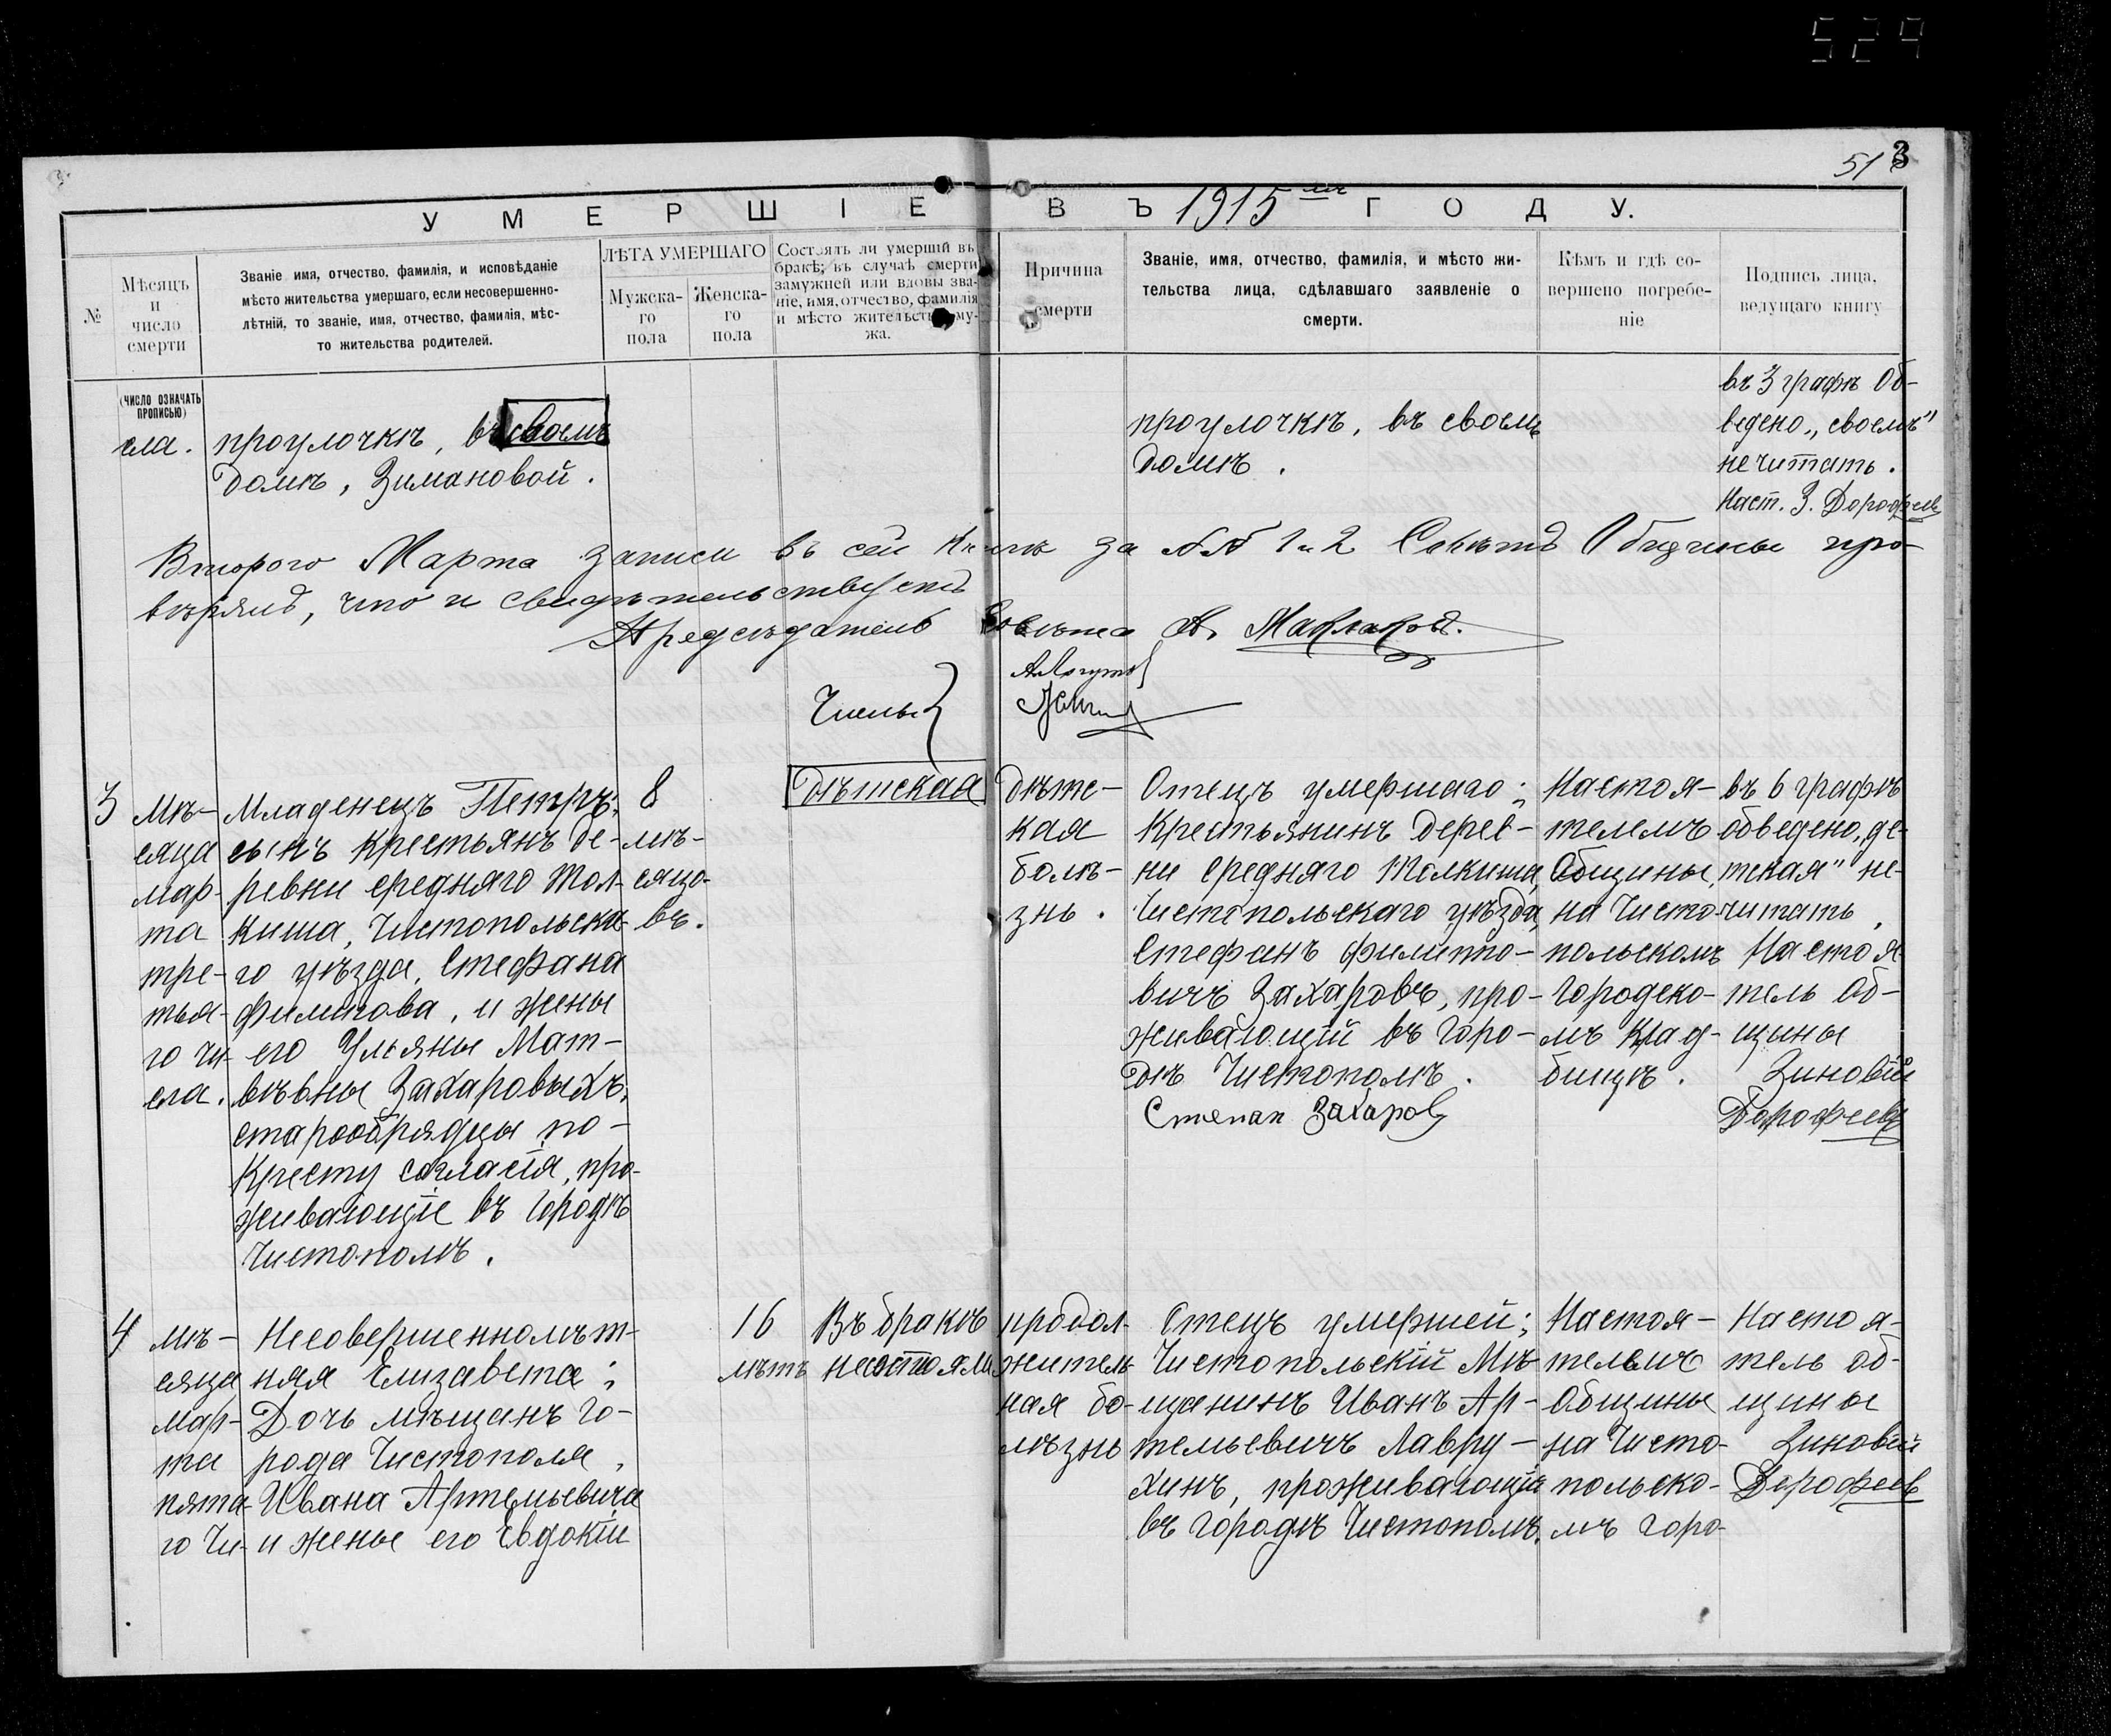 529
51 3
УМЕРШІЕ ВЪ 1915мъ ГОДУ.
№
Мѣсяцъ
и
число
смерти
Званіе имя, отчество, фамилія, и исповѣданіе
мѣсто жительства умершаго, если несовершенно-
лѣтній, то званіе, имя, отчество, фамилія, мѣс-
то жительства родителей.
ЛѢТА УМЕРШАГО
Мужска-
го
пола
Женска-
го
пола
Состоялъ ли умершій въ
бракѣ; въ случаѣ смерти
замужней или вдовы зва-
ніе, имя, отчество, фамилія
и мѣсто жительства му-
жа.
Причина
смерти
Званіе, имя, отчество, фамилія, и мѣсто жи-
тельства лица, сдѣлавшаго заявленіе о
смерти.
Кѣмъ и гдѣ со-
вершено погребе-
ніе
Подпись лица,
ведущаго книгу
(ЧИСЛО ОЗНАЧАТЬ
ПРОПИСЬЮ)
сла.
проулочкѣ, въ своемъ
домѣ, Зимановой.
проулочкѣ, въ своемъ
домѣ.
въ 3 графѣ Об-
ведено „своемъ"
не читать.
Наст. З. Дорофеевъ
Второго Марта записи въ сей книгѣ за №№ 1 и 2 Совѣтъ Общины про-
вѣрялъ, что и свидѣтельствуетъ
Предсѣдатель Совѣта А. Маклаковъ.
Члены
3
Мѣ-
сяца
мар-
та
тре-
тья-
го чи-
сла.
Младенецъ Петръ;
сынъ крестьянъ де-
ревни средняго Тол-
киша, Чистопольска-
го уѣзда, Стефана
Филитова, и жены
его Ульяны Мат-
вѣвны Захаровыхъ,
старообрядцы по-
Кресту согласія, про-
живающіе въ городѣ
Чистополѣ.
8
мѣ-
сяцо-
въ.
Дѣтская
Дѣтс-
кая
болѣ-
знь.
Отецъ умершаго;
Крестьянинъ Дерев-
ни Средняго Толкиша,
Чистопольскаго уѣзда,
Стефанъ Филито-
вичъ Захаровъ, про-
живающій въ Горо-
дѣ Чистополѣ.
Степан Захаров
Настоя-
телемъ
Общины,
на Чисто-
польскомъ
Городско-
мъ Клад-
бищѣ.
въ 6 графѣ
обведено „де-
тская" не-
читать,
Настоя-
тель Об-
щины
Зиновій
Дорофеевъ
4
мѣ-
сяца
мар-
та
пята-
го Чи-
Несовершеннолѣт-
няя Елизавета;
Дочь мѣщанъ го-
рода Чистополя,
Ивана Артемьевича
и жены его Евдокіи
16
лѣтъ
Въ бракѣ
несостояла
продол-
житель-
ная бо-
лѣзнь
Отецъ умершей;
Чистопольскій Мѣ-
щанинъ Иванъ Ар-
темьевичъ Лавру-
хинъ, проживающій
въ городѣ Чистополѣ.
Настоя-
телемъ
Общины
на Чисто-
польско-
мъ Горо-
Настоя-
тель об-
щины
Зиновій
Дорофеевъ